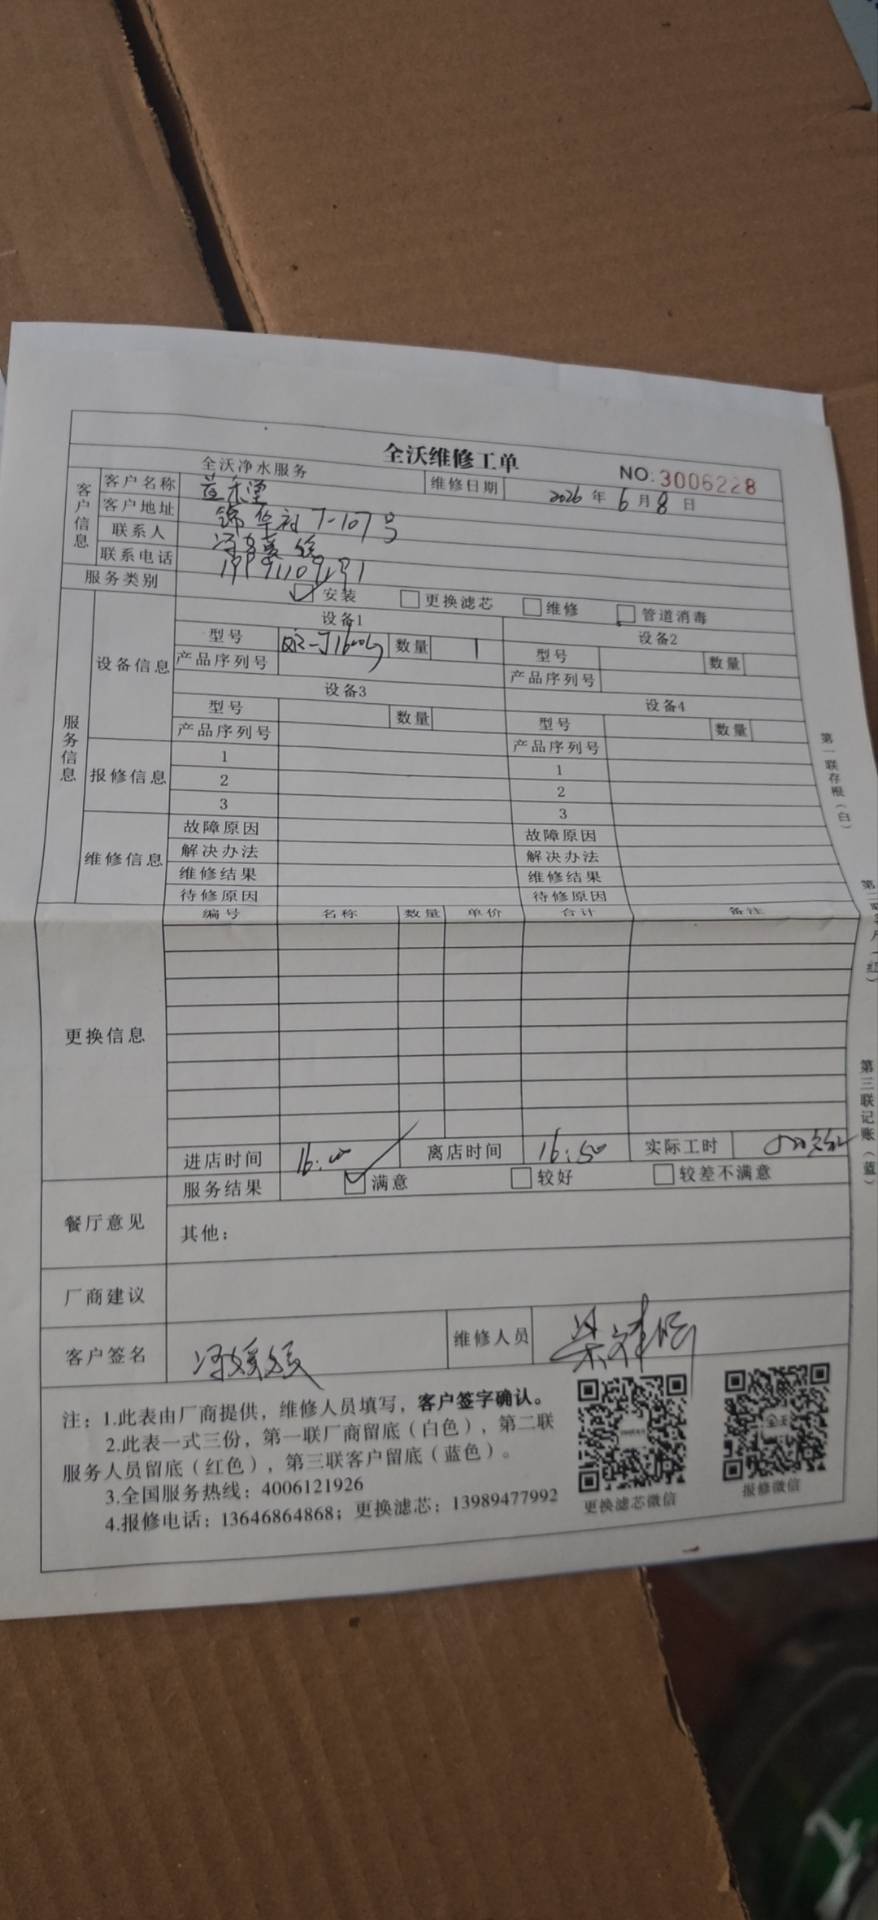 全沃维修工单
全沃净水服务 NO:3006228
客户信息
客户名称 维修日期 2026 年 6 月 8 日
客户地址 锦华 7-107号
联系人
联系电话
服务类别 安装 更换滤芯 维修 管道消毒
服务信息
设备信息
设备1 设备2
型号 数量 1 型号 数量
产品序列号 产品序列号
设备3 设备4
型号 数量 型号 数量
产品序列号 产品序列号
报修信息
1 1
2 2
3 3
维修信息
故障原因 故障原因
解决办法 解决办法
维修结果 维修结果
待修原因 待修原因
更换信息
编号 名称 数量 单价 合计 备注
进店时间 16:00 离店时间 16:50 实际工时
餐厅意见
服务结果 满意 较好 较差不满意
其他：
厂商建议
客户签名 维修人员
注：1.此表由厂商提供，维修人员填写，客户签字确认。
2.此表一式三份，第一联厂商留底（白色），第二联
服务人员留底（红色），第三联客户留底（蓝色）。
3.全国服务热线：4006121926
4.报修电话：13646864868；更换滤芯：13989477992
更换滤芯微信 报修微信
第一联存根（白）
第三联记账（蓝）